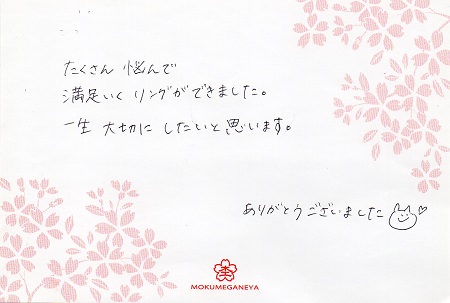 たくさん 悩んで
満足いく リングができました。
一生 大切に したいと思います。
ありがとうございました
MOKUMEGANEYA